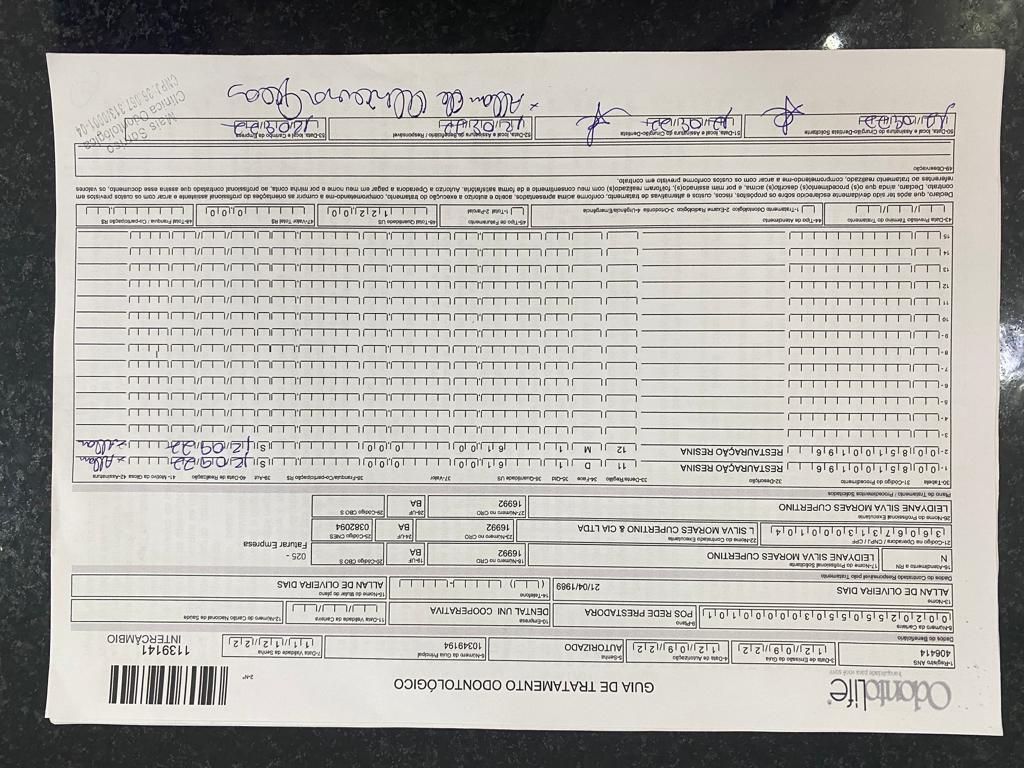 OdontoLife
tranquilidade para você sorrir
GUIA DE TRATAMENTO ODONTOLÓGICO
2-Nº
1139141
INTERCÂMBIO
1-Registro ANS
406414
3-Data de Emissão da Guia
12/09/22
4-Data de Autorização
12/09/22
5-Senha
AUTORIZADO
6-Número da Guia Principal
1049194
7-Data Validade da Senha
11/12/22
Dados do Beneficiário
8-Número da Carteira
9-Plano
POS REDE PRESTADORA
10-Empresa
DENTAL UNI COOPERATIVA
11-Data Validade da Carteira
12-Número do Cartão Nacional de Saúde
13-Nome
ALLAN DE OLIVEIRA DIAS
21/04/1989
14-Telefone
15-Nome do titular do plano
ALLAN DE OLIVEIRA DIAS
Dados do Contratado Responsável pelo Tratamento
16-Atendimento a RN
N
17-Nome do Profissional Solicitante
LEIDYANE SILVA MORAES CUPERTINO
18-Número no CRO
16992
19-UF
BA
20-Código CBO S
025 -
Faturar Empresa
21-Código na Operadora / CNPJ / CPF
36067313000104
22-Nome do Contratado Executante
L SILVA MORAES CUPERTINO & CIA LTDA
23-Número no CRO
16992
24-UF
BA
25-Código CNES
0382094
26-Nome do Profissional Executante
LEIDYANE SILVA MORAES CUPERTINO
27-Número no CRO
16992
28-UF
BA
29-Código CBO S
Plano de Tratamento / Procedimentos Solicitados
30-Tabela 31-Código do Procedimento 32-Descrição 33-Dente/Região 34-Face 35-Qtd 36-Quantidade US 37-Valor 38-Franquia/Co-participação R$ 39-Aut 40-Data de Realização 41-Motivo da Glosa 42-Assinatura
1- 00 85100196 RESTAURAÇÃO RESINA 11 D 1 61,00 0,00 S 12/09/22 x Allan
2- 00 85100196 RESTAURAÇÃO RESINA 12 M 1 61,00 0,00 S 12/09/22 x Allan
3-
4-
5-
6-
7-
8-
9-
10
11
12
13
14
15
43-Data Previsão Término do Tratamento
44-Tipo de Atendimento
1-Tratamento Odontológico 2-Exame Radiológico 3-Ortodontia 4-Urgência/Emergência
45-Tipo de Faturamento
1-Total 2-Parcial
46-Total Quantidade US
122,00
47-Valor Total R$
0,00
48-Total Franquia / Co-participação R$
Declaro, que após ter sido devidamente esclarecido sobre os propósitos, riscos, custos e alternativas de tratamento, conforme acima apresentados, aceito e autorizo a execução do tratamento, comprometendo-me a cumprir as orientações do profissional assistente e arcar com os custos previstos em
contrato. Declaro, ainda que o(s) procedimento(s) descrito(s) acima, e por mim assinado(s), foi/foram realizado(s) com meu consentimento e de forma satisfatória. Autorizo a Operadora a pagar em meu nome e por minha conta, ao profissional contratado que assina esse documento, os valores
referentes ao tratamento realizado, comprometendo-me a arcar com os custos conforme previsto em contrato.
49-Observação
50-Data, local e Assinatura do Cirurgião-Dentista Solicitante
12/09/22
51-Data, local e Assinatura do Cirurgião-Dentista
12/09/22
52-Data, local e Assinatura do Beneficiário / Responsável
12/09/22
x Allan de Oliveira Dias
53-Data, local e Carimbo da Empresa
12/09/22
Mais Sorriso
Clínica Odontológica